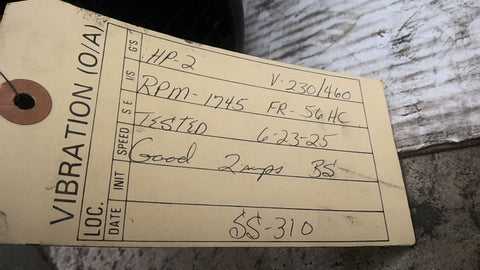 VIBRATION (O/A)
LOC.
DATE INIT SPEED S E I/S G'S
HP-2 V-230/460
RPM-1745 FR-56HC
TESTED 6-23-25
Good 2amps BS
SS-310